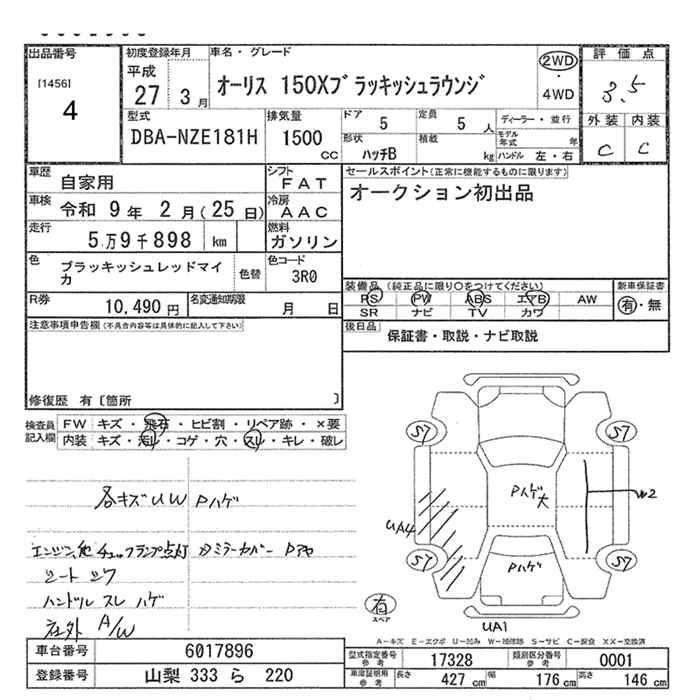 出品番号 初度登録年月 車名・グレード 評価点
[1456] 平成 オーリス 150Xブラッキッシュラウンジ 2WD 3.5
4 27 3月 ・ 4WD
型式 排気量 ドア 5 定員 5人 ディーラー・並行 外装 内装
DBA-NZE181H 1500cc 形状 ハッチB 積載 kg モデル年式 年 C C
ハンドル 左・右
車歴 自家用 シフト FAT セールスポイント(正常に機能するものに限ります)
車検 令和 9年 2月(25日) 冷房 AAC オークション初出品
走行 5万9千898 km 燃料 ガソリン
色 ブラッキッシュレッドマイカ 色替 色コード 3R0
装備品(純正品に限り○をつけてください) 新車保証書
PS PW ABS エアB AW 有・無
SR ナビ TV カワ
R券 10,490円 名変通知期限 月 日
後日品 保証書・取説・ナビ取説
注意事項申告欄(不具合内容等は具体的に記入して下さい)
修復歴 有〔箇所 〕
検査員記入欄 FW キズ・飛石・ヒビ割・リペア跡・×要
内装 キズ・汚レ・コゲ・穴・スレ・キレ・破レ
各キズUW Pハゲ
チェックランプ点灯
ハンドル スレ ハゲ
A/W
S7 S7
Pハゲ大 W2
UA4
S7 Pハゲ S7
有
スペア
UA1
A-キズ E-エクボ U-凹み W-補修跡 S-サビ C-腐食 XX-交換済
車台番号 6017896 型式指定番号 参考 17328 類別区分番号 参考 0001
登録番号 山梨 333 ら 220 車庫証明用 参考 長さ 427 cm 幅 176 cm 高さ 146 cm